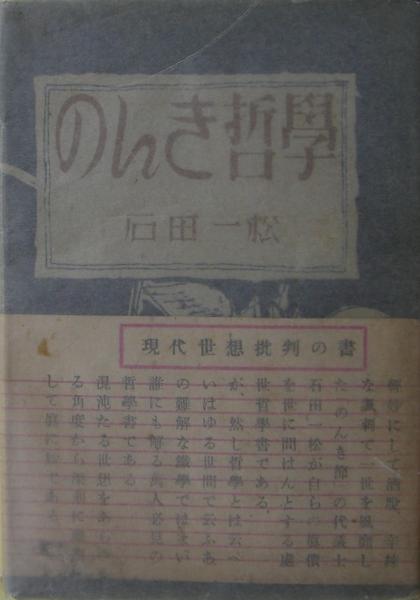 のんき哲學
石田一松
現代世想批判の書
輕妙にして洒脱、辛辣
な諷刺で一世を風靡し
た「のんき節」の代議士
石田一松が自らの眞價
を世に問はんとする處
世哲學書である。
が、然し哲學とは云へ
いはゆる世間で云ふあ
の難解な鐵學ではない
誰にも解る萬人必見の
哲學書である
混沌たる世想をあら
る角度から
して